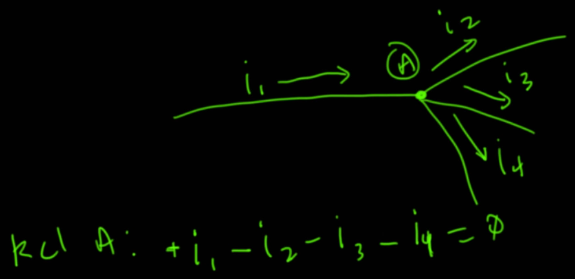 i₂
A
i₁
i₃
i₄
kcl A: +i₁ - i₂ - i₃ - i₄ = 0